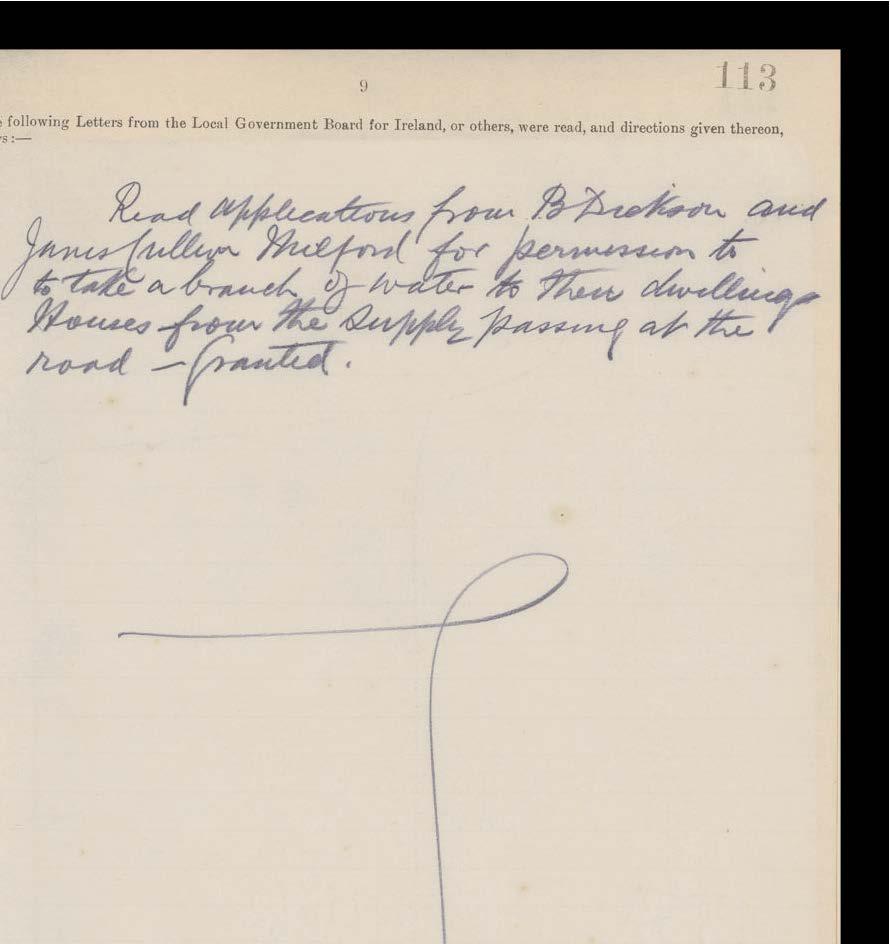 9
113
following Letters from the Local Government Board for Ireland, or others, were read, and directions given thereon,
:—
Read applications from B Dickson and
James Cullen Milford for permission to
to take a branch of water to their dwellings
Houses from the supply passing at the
road – Granted.